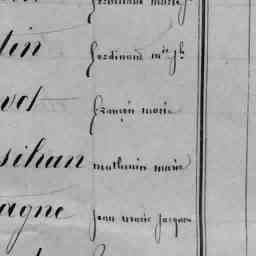 ferdinand marie
tin ferdinand m.ie j.h
vot françois marie
sihan mathurin marie
agne jean marie jacques